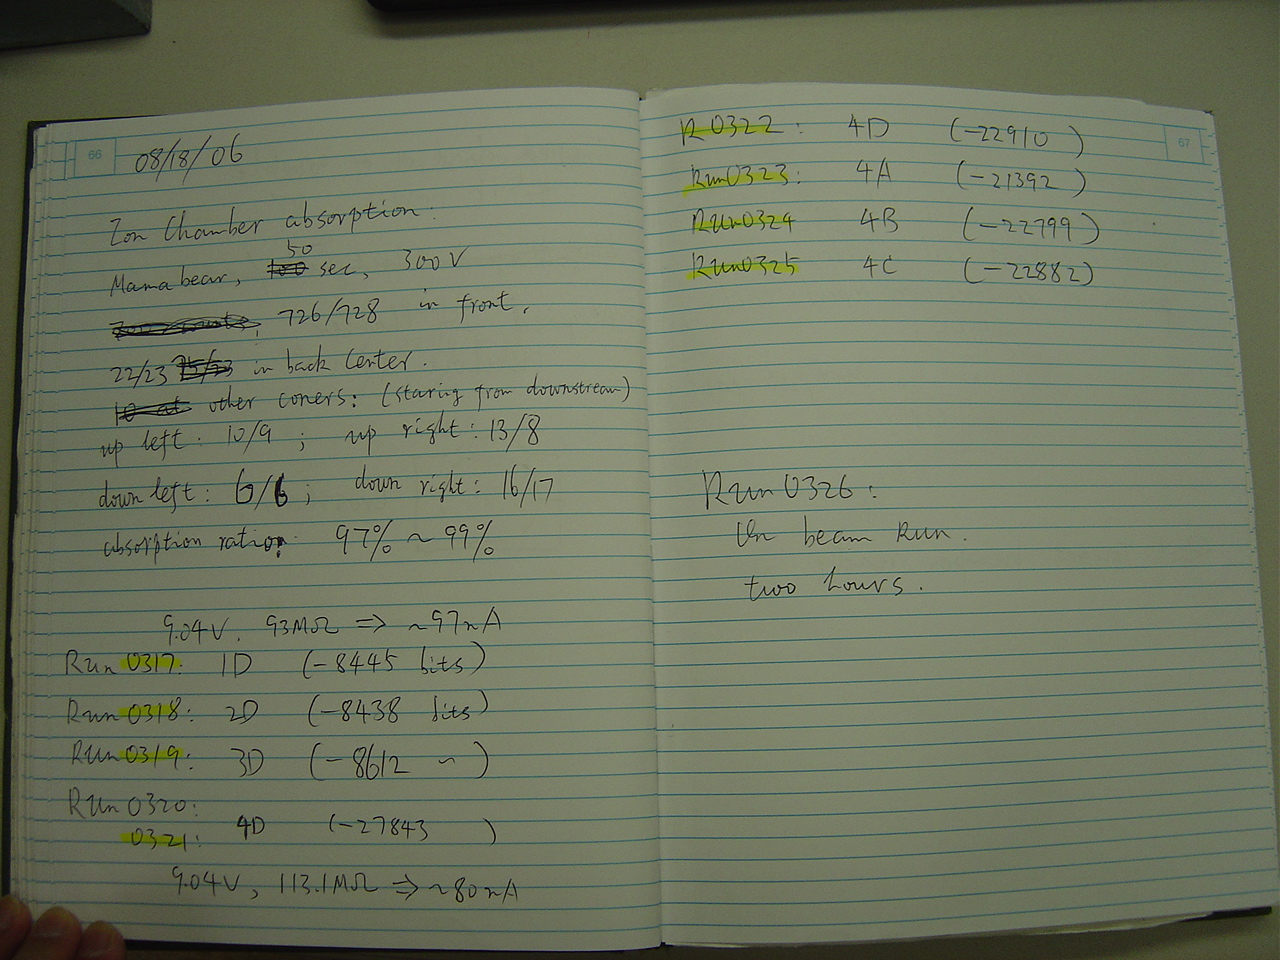 66
08/18/06
Ion Chamber absorption.
Mama bear, 50 sec, 300V
726/728 in front.
22/23 in back Center.
other coners: (staring from downstream)
up left: 10/9 ; up right: 13/8
down left: 6/6 ; down right: 16/17
absorption ratio: 97% ~ 99%
9.04V. 93MΩ => ~97nA
Run 0317: 1D (-8445 bits)
Run 0318: 2D (-8438 bits)
Run 0319: 3D (-8612 ~ )
Run 0320:
0321: 4D (-27843 )
9.04V, 113.1MΩ => ~80nA
67
R 0322: 4D (-22910 )
Run0323: 4A (-21392 )
Run0324 4B (-22799 )
Run0325 4C (-22882)
Run 0326:
On beam Run.
two hours.